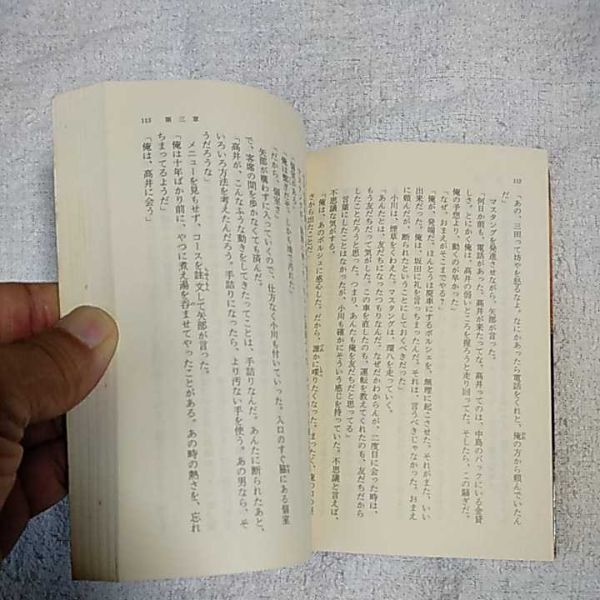 112
「あの、三田って坊やを怒るなよ。なにかあったら電話をくれと、俺の方から頼んでいたん
だ」
マスタングを発進させながら、矢部が言った。
「何日か前も、電話があった。高井が来たってな。高井ってのは、中島のバックにいる金貸
しさ。とにかく俺は、高井の弱いところを握ろうと走り回ってた。そしたら、この騒ぎだ。
俺の予想より、動くのが早かった」
「なぜ、おまえがそこまでやる?」
「俺、発端だ。ほんとうは廃車にするポルシェを、無理に起こさせた。それがまた、いい
出来だった。俺は、坂田に礼を言っちまったんだ。それは、言うべきじゃなかった。おまえ
が断られたということにしておくべきだった」
小川は、煙草をくわえた。マスタングは、環八を走っていく。
「あんたとは、友だちになったつもりなんだ。なぜだかわからんが、二度目に会った時は、
もう友だちだって気がした。この車を直したのも、運転を教えてくれたのも、友だちだから
したことだろうと思った。つまり、あんたも俺を友だちだと思ってる」
言葉にしたことはなかったが、小川も確かにそういう感じを持っていた。不思議と言えば、
不思議な気がする。
「俺は、あのポルシェに感心した。だから、誰かに喋りたくなった。
113 第三章
「俺は繋ぎだぞ。しかも
「だから、個室さ」
矢部が構わずに入っていくので、仕方なく小川も付いていった。入口のすぐ脇にある個室
で、客席の間を歩かなくても済んだ。
「高井が、こんなふうな動きをしてきたってことは、手詰りなんだ。あんたに断られたあと、
いろいろ方法を考えたんだろう。手詰りになったら、より汚ない手を使う。あの男なら、そ
うだろうな」
メニューを見もせず、コースを註文して矢部が言った。
「俺は、高井に会う」
「俺は十年ばかり前に、やつに煮え湯を呑ませてやったことがある。あの時の熱さを、忘れ
ちまってるようだ」